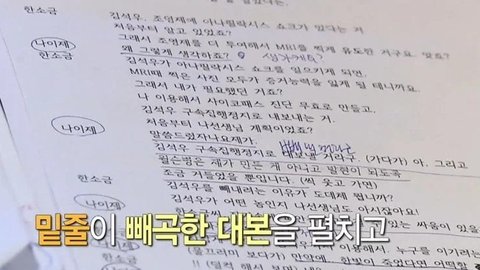 한소금
김석우, 조영제에 아나필락시스 쇼크가 있다는 거
처음부터 알고 있었죠?
나이제
그래서 조영제를 더 투여해서 MRI를 찍게 유도한 저구요. 맞죠?
왜 그렇게 생각하죠?
한소금
김석우가 아나필락시스 쇼크를 일으키게 되면,
MRI때 찍은 사진 모두가 증거능력을 잃게 될 테니까요.
그래서 내가 필요했던 거죠?
나 이용해서 사이코패스 진단 무효로 만들고,
김석우 구속집행정지로 내보내는 거.
처음부터 나선생님 계획이었죠?
나이제
말씀드렸자나요제가.
김석우 구속집행정지로 내보낼 거라구. (가다가) 아, 그리고
윌슨병은 제가 만든 게 아니고 발현이 되도록
조금 거들었을 뿐입니다 (씩 웃고 가면)
한소금
김석우를 빼내려는 이유가 도대체 뭡니까?
김석우가 어떤 놈인지 나선생님도 아시잖아요!
나이제
밑줄이 빼곡한 대본을 펼치고